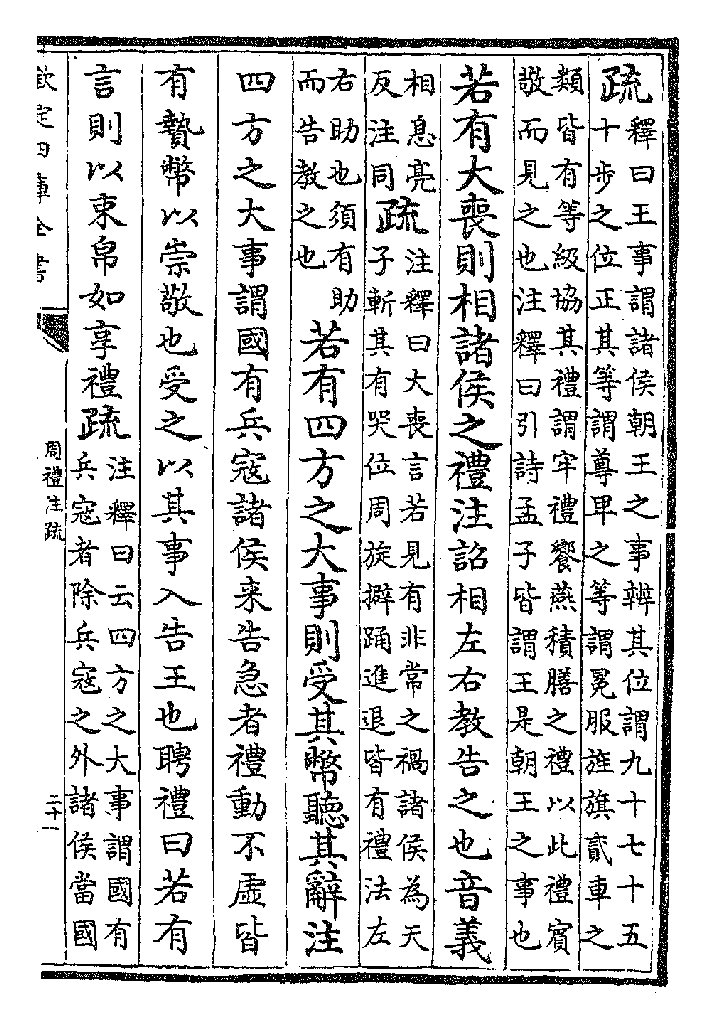 疏釋曰王事謂諸侯朝王之事辨其位謂九十七十五
十步之位正其等謂尊卑之等謂冕服旌旗貳車之
類皆有等級協其禮謂牢禮饗燕積膳之禮以此禮賓
敬而見之也注釋曰引詩孟子皆謂王是朝王之事也
若有大喪則相諸侯之禮注詔相左右教告之也音義
相息亮
反注同疏注釋曰大喪言若見有非常之禍諸侯為天
子斬其有哭位周旋擗踊進退皆有禮法左
右助也須有助
而告教之也若有四方之大事則受其幣聽其辭注
四方之大事謂國有兵寇諸侯来告急者禮動不虛皆
有贄幣以崇敬也受之以其事入告王也聘禮曰若有
言則以束帛如享禮疏注釋曰云四方之大事謂國有
兵寇者除兵寇之外諸侯當國
欽定四庫全書
周禮注疏
二十一